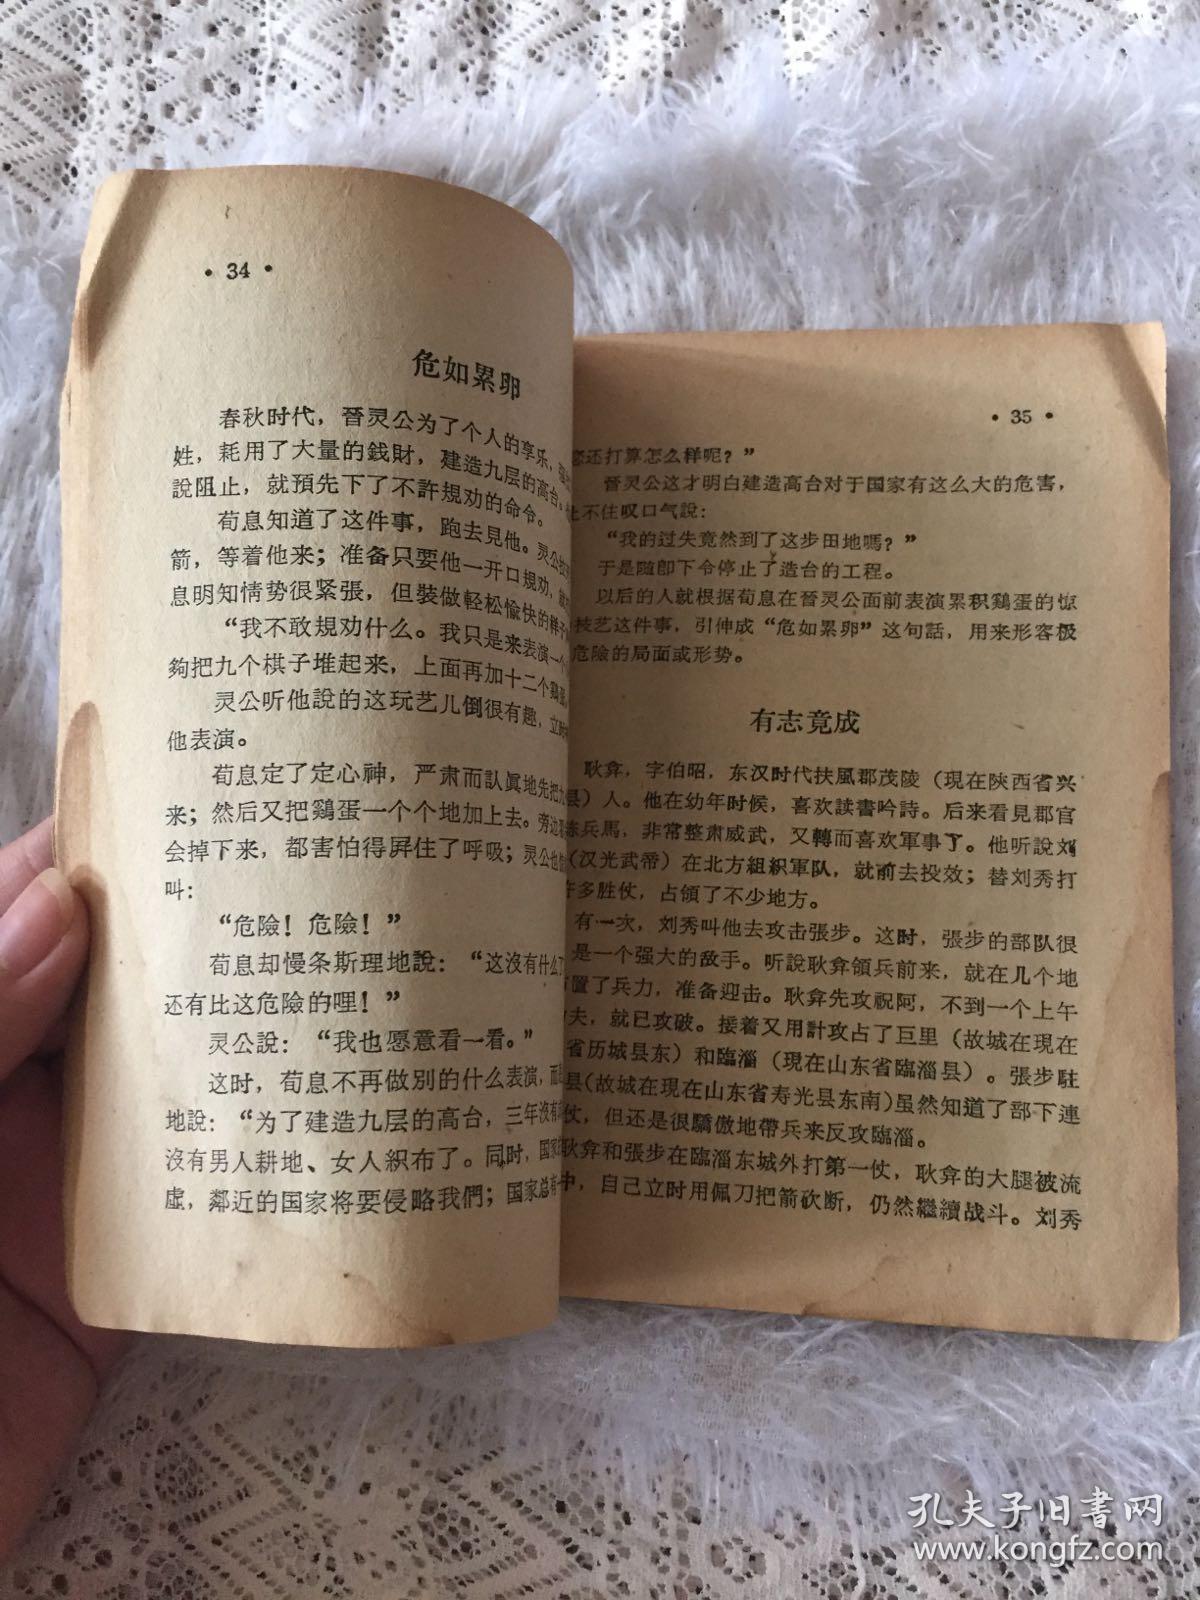 • 34 •
危如累卵
春秋时代，晉灵公为了个人的享乐，
姓，耗用了大量的錢財，建造九层的高台。
說阻止，就預先下了不許規劝的命令。
荀息知道了这件事，跑去見他。灵公
箭，等着他来；准备只要他一开口規劝，就
息明知情势很紧張，但裝做輕松愉快的样子
“我不敢規劝什么。我只是来表演一个
夠把九个棋子堆起来，上面再加十二个鷄蛋
灵公听他說的这玩艺儿倒很有趣，立时
他表演。
荀息定了定心神，严肃而認眞地先把九
来；然后又把鷄蛋一个个地加上去。旁边
会掉下来，都害怕得屛住了呼吸；灵公也
叫：
“危險！危險！”
荀息却慢条斯理地說：“这沒有什么了
还有比这危險的哩！”
灵公說：“我也愿意看一看。”
这时，荀息不再做別的什么表演，而
地說：“为了建造九层的高台，三年沒有
沒有男人耕地、女人織布了。同时，国家
虛，鄰近的国家将要侵略我們；国家总有一
• 35 •
您还打算怎么样呢？”
晉灵公这才明白建造高台对于国家有这么大的危害，
止不住叹口气說：
“我的过失竟然到了这步田地嗎？”
于是随卽下令停止了造台的工程。
以后的人就根据荀息在晉灵公面前表演累积鷄蛋的惊
技艺这件事，引伸成“危如累卵”这句話，用来形容极
危險的局面或形势。
有志竟成
耿弇，字伯昭，东汉时代扶風郡茂陵（現在陝西省兴
县）人。他在幼年时侯，喜欢读書吟詩。后来看見郡官
兵馬，非常整肃威武，又轉而喜欢軍事了。他听說刘
（汉光武帝）在北方組織軍队，就前去投效；替刘秀打
许多胜仗，占領了不少地方。
有一次，刘秀叫他去攻击張步。这时，張步的部队很
是一个强大的敌手。听說耿弇領兵前来，就在几个地
置了兵力，准备迎击。耿弇先攻祝阿，不到一个上午
夫，就已攻破。接着又用計攻占了巨里（故城在現在
省历城县东）和臨淄（現在山东省臨淄县）。張步駐
县（故城在現在山东省寿光县东南）虽然知道了部下連
仗，但还是很驕傲地帶兵来反攻臨淄。
耿弇和張步在臨淄东城外打第一仗，耿弇的大腿被流
中，自己立时用佩刀把箭砍断，仍然繼續战斗。刘秀
孔夫子旧書网
www.kongfz.com